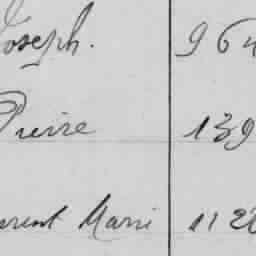 Joseph. 964
Pierre 139
urent Marie 1122